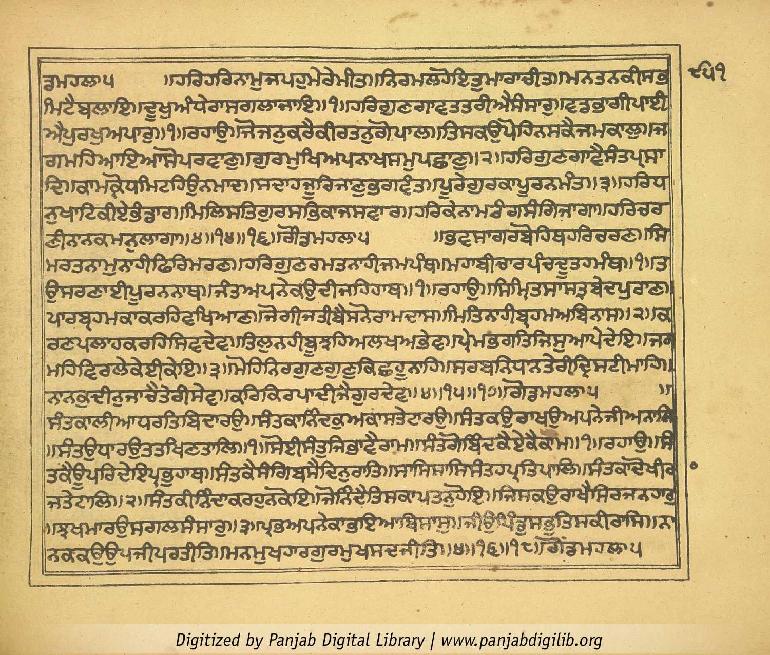 ਡਮਹਲਾ੫ ॥ਹਰਿਹਰਿਨਾਮੁਜਪਹੁਮੇਰੇਮੀਤ॥ਨਿਰਮਲਹੋਇਤੁਮਾਰਾਚੀਤ॥ਮਨਤਨਕੀਸਭ ੮੫੧
ਮਿਟੈਬਲਾਇ॥ਦੂਖੁਅੰਧੇਰਾਸਗਲਾਜਾਇ॥੧॥ਹਰਿਗੁਣਗਾਵਤਤਰੀਐਸੰਸਾਰੁ॥ਵਡਭਾਗੀਪਾਈ
ਐਪੁਰਖੁਅਪਾਰੁ॥੧॥ਰਹਾਉ॥ਜੋਜਨੁਕਰੈਕੀਰਤਨੁਗੋਪਾਲ॥ਤਿਸਕਉਪੋਹਿਨਸਕੈਜਮਕਾਲੁ॥ਜ
ਗਮਹਿਆਇਆਸੋਪਰਵਾਣੁ॥ਗੁਰਮੁਖਿਅਪਨਾਖਸਮੁਪਛਾਣੁ॥੨॥ਹਰਿਗੁਣਗਾਵੈਸੰਤਪ੍ਰਸਾ
ਦਿ॥ਕਾਮਕ੍ਰੋਧਮਿਟਹਿਉਨਮਾਦ॥ਸਦਾਹਜੂਰਿਜਾਣੁਭਗਵੰਤ॥ਪੂਰੇਗੁਰਕਾਪੂਰਨਮੰਤ॥੩॥ਹਰਿਧ
ਨੁਖਾਟਿਕੀਏਭੰਡਾਰ॥ਮਿਲਿਸਤਿਗੁਰਸਭਿਕਾਜਸਵਾਰ॥ਹਰਿਕੇਨਾਮਰੰਗਸੰਗਿਜਾਗਾ॥ਹਰਿਚਰ
ਣੀਨਾਨਕਮਨੁਲਾਗਾ॥੪॥੧੪॥੧੬॥ਗੋਂਡਮਹਲਾ੫ ॥ਭਵਸਾਗਰਬੋਹਿਥਹਰਿਚਰਣ॥ਸਿ
ਮਰਤਨਾਮੁਨਾਹੀਫਿਰਿਮਰਣ॥ਹਰਿਗੁਣਰਮਤਨਾਹੀਜਮਪੰਥ॥ਮਹਾਬੀਚਾਰਪੰਚਦੂਤਹਮੰਥ॥੧॥ਤ
ਉਸਰਣਾਈਪੂਰਨਨਾਥ॥ਜੰਤਅਪਨੇਕਉਦੀਜਹਿਹਾਥ॥੧॥ਰਹਾਉ॥ਸਿਮ੍ਰਿਤਸਾਸਤ੍ਰਬੇਦਪੁਰਾਣ॥
ਪਾਰਬ੍ਰਹਮਕਾਕਰਹਿਵਖਿਆਣ॥ਜੋਗੀਜਤੀਬੈਸਨੋਰਾਮਦਾਸ॥ਮਿਤਿਨਾਹੀਬ੍ਰਹਮਅਬਿਨਾਸ॥੨॥ਕ
ਰਣਪਲਾਹਕਰਹਿਸਿਵਦੇਵ॥ਤਿਲੁਨਹੀਬੂਝਹਿਅਲਖਅਭੇਵ॥ਪ੍ਰੇਮਭਗਤਿਜਿਸੁਆਪੇਦੇਇ॥ਜਗ
ਮਹਿਵਿਰਲੇਕੇਈਕੇਇ॥੩॥ਮੋਹਿਨਿਰਗੁਣਗੁਣੁਕਿਛਹੂਨਾਹਿ॥ਸਰਬਨਿਧਾਨਤੇਰੀਦ੍ਰਿਸਟੀਮਾਹਿ॥
ਨਾਨਕੁਦੀਨੁਜਾਚੈਤੇਰੀਸੇਵ॥ਕਰਿਕਿਰਪਾਦੀਜੈਗੁਰਦੇਵ॥੪॥੧੫॥੧੭॥ਗੋਂਡਮਹਲਾ੫ ॥
ਸੰਤਕਾਲੀਆਧਰਤਿਬਿਦਾਰਉ॥ਸੰਤਕਾਨਿੰਦਕੁਅਕਾਸਤੇਟਾਰਉ॥ਸੰਤਕਉਰਾਖਉਅਪਨੇਜੀਅਨਾਲਿ
॥ਸੰਤਉਧਾਰਉਤਤਖਿਣਤਾਲਿ॥੧॥ਸੋਈਸੰਤੁਜਿਭਾਵੈਰਾਮ॥ਸੰਤਗੋਬਿੰਦਕੈਏਕੈਕਾਮ॥੧॥ਰਹਾਉ॥ਸੰ
ਤਕੈਊਪਰਿਦੇਇਪ੍ਰਭੁਹਾਥ॥ਸੰਤਕੈਸੰਗਿਬਸੈਦਿਨੁਰਾਤਿ॥ਸਾਸਿਸਾਸਿਸੰਤਹਪ੍ਰਤਿਪਾਲਿ॥ਸੰਤਕਾਦੋਖੀਰਾ
ਜਤੇਟਾਲਿ॥੨॥ਸੰਤਕੀਨਿੰਦਾਕਰਹੁਨਕੋਇ॥ਜੋਨਿੰਦੈਤਿਸਕਾਪਤਨੁਹੋਇ॥ਜਿਸਕਉਰਾਖੈਸਿਰਜਨਹਾਰੁ
॥ਝਖਮਾਰਉਸਗਲਸੰਸਾਰੁ॥੩॥ਪ੍ਰਭਅਪਨੇਕਾਭਇਆਬਿਸਾਸੁ॥ਜੀਉਪਿੰਡੁਸਭੁਤਿਸਕੀਰਾਸਿ॥ਨਾ
ਨਕਕਉਉਪਜੀਪਰਤੀਤਿ॥ਮਨਮੁਖਹਾਰਗੁਰਮੁਖਸਦਜੀਤਿ॥੪॥੧੬॥੧੮॥ਗੋਂਡਮਹਲਾ੫
Digitized by Panjab Digital Library | www.panjabdigilib.org